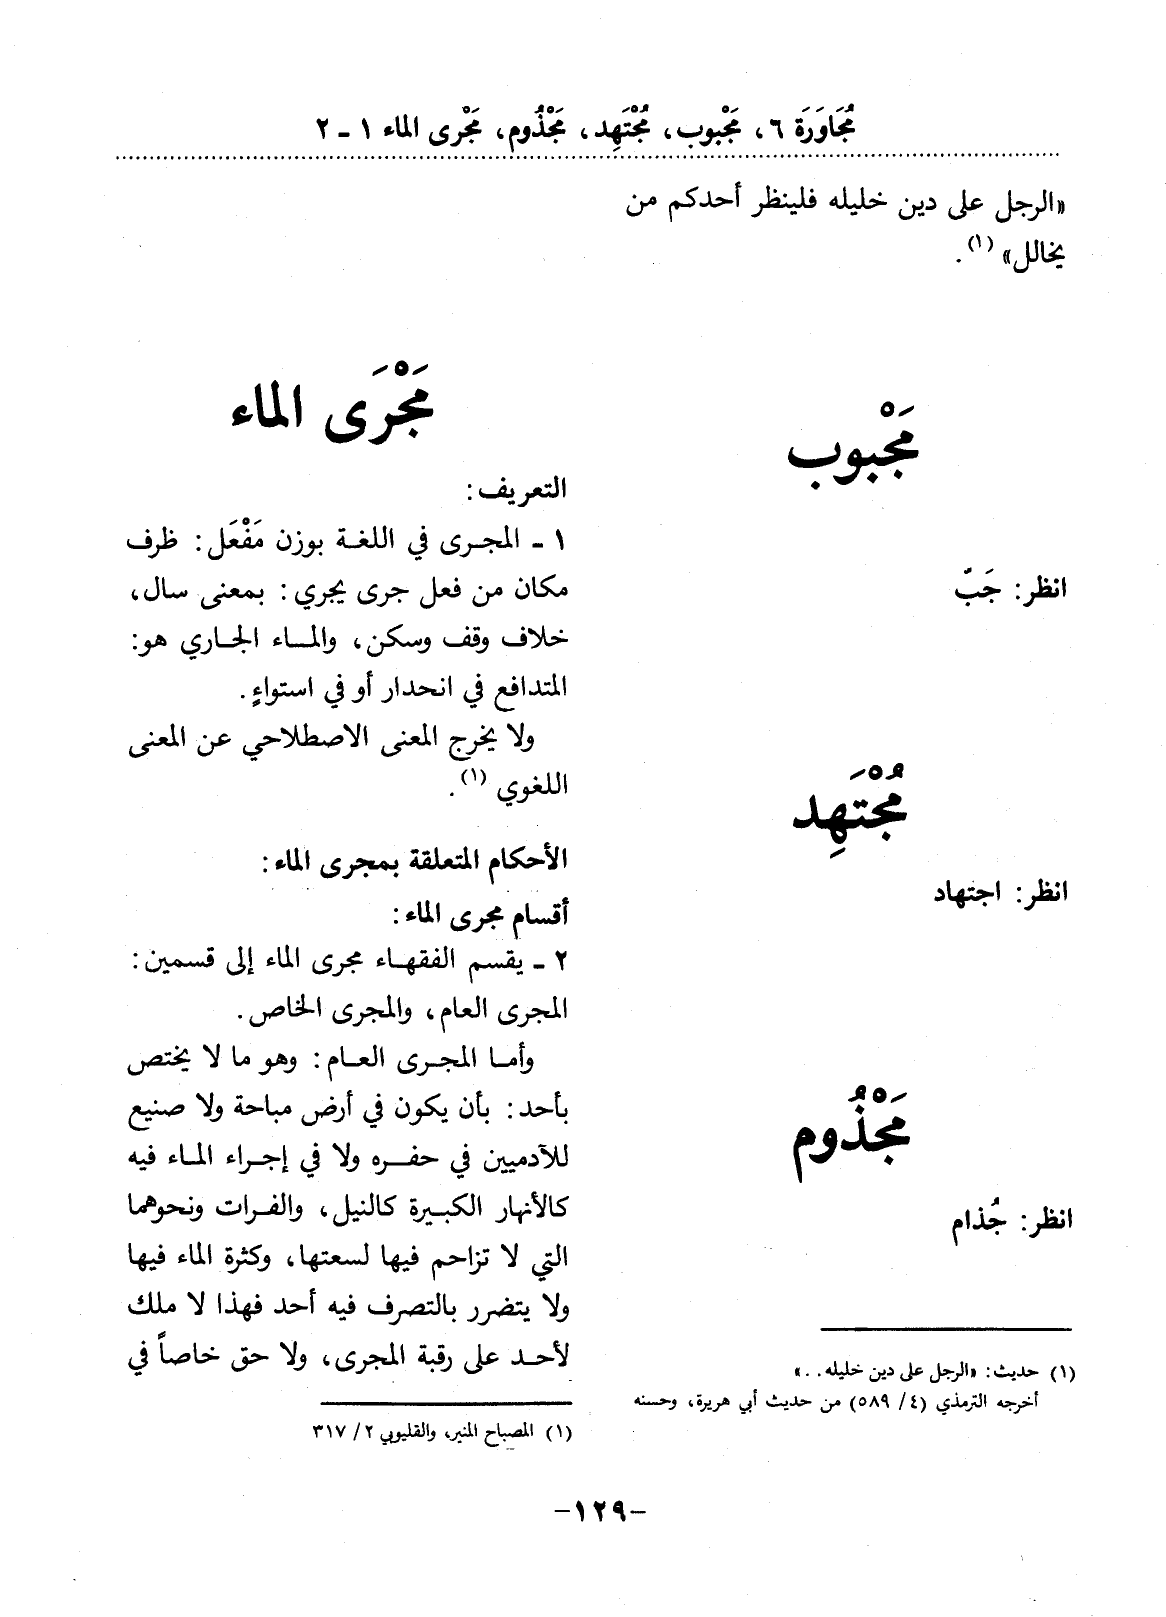 مُجَاوَرَة ٦، مَجْبوب، مُجْتَهِد، مَجْذُوم، مَجْرى الماء ١ - ٢
«الرجل على دين خليله فلينظر أحدكم من
يخالل» (١).
مَجْبوب
انظر: جَبّ
مُجْتَهِد
انظر: اجتهاد
مَجْذُوم
انظر: جُذام
(١) حديث: «الرجل على دين خليله..»
أخرجه الترمذي (٤/ ٥٨٩) من حديث أبي هريرة، وحسنه
مَجْرَى الماء
التعريف:
١ - المجرى في اللغة بوزن مَفْعَل: ظرف
مكان من فعل جرى يجري: بمعنى سال،
خلاف وقف وسكن، والماء الجاري هو:
المتدافع في انحدار أو في استواءٍ.
ولا يخرج المعنى الاصطلاحي عن المعنى
اللغوي (١).
الأحكام المتعلقة بمجرى الماء:
أقسام مجرى الماء:
٢ - يقسم الفقهاء مجرى الماء إلى قسمين:
المجرى العام، والمجرى الخاص.
وأما المجرى العام: وهو ما لا يختص
بأحد: بأن يكون في أرض مباحة ولا صنيع
للآدميين في حفره ولا في إجراء الماء فيه
كالأنهار الكبيرة كالنيل، والفرات ونحوهما
التي لا تزاحم فيها لسعتها، وكثرة الماء فيها
ولا يتضرر بالتصرف فيه أحد فهذا لا ملك
لأحد على رقبة المجرى، ولا حق خاصاً في
(١) المصباح المنير، والقليوبي ٢/ ٣١٧
-١٢٩-